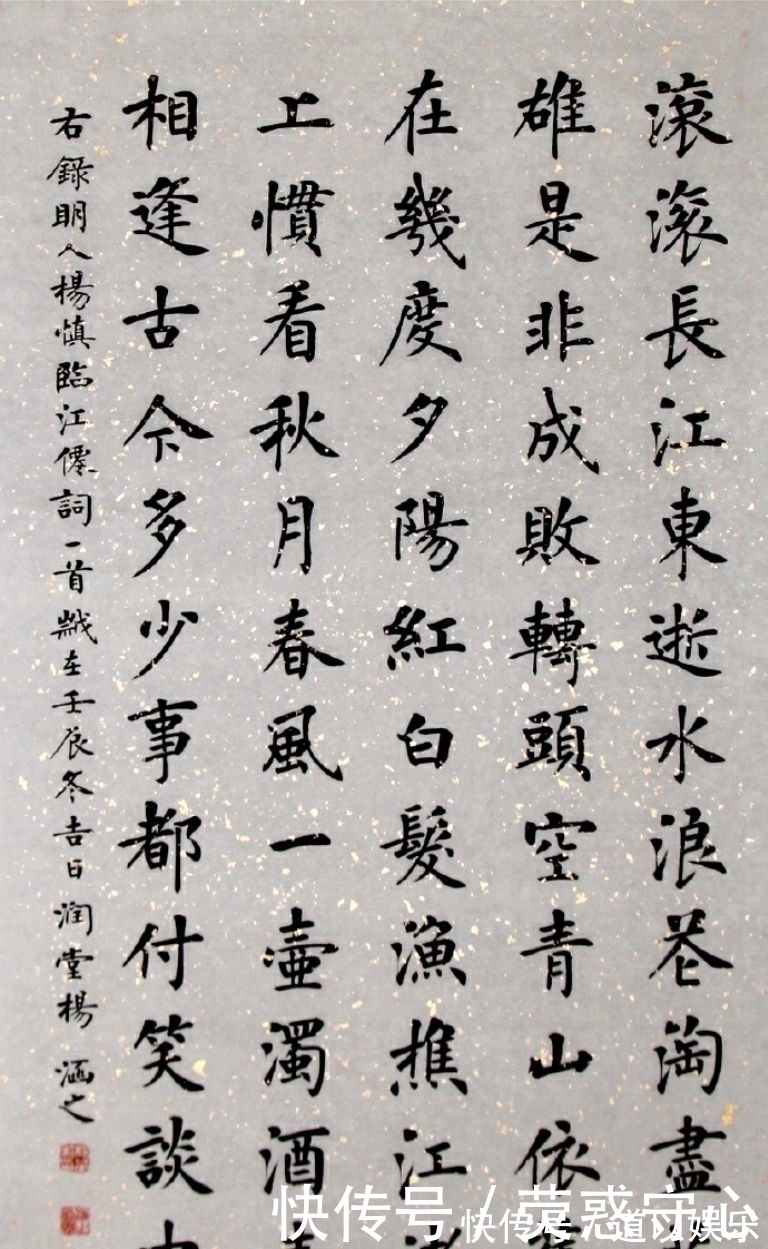 滾滾長江東逝水浪花淘盡
雄是非成敗轉頭空青山依
在幾度夕陽紅白髮漁樵江
上慣看秋月春風一壺濁酒
相逢古今多少事都付笑談
右錄明人楊慎臨江僊詞一首歲在壬辰冬吉日潤堂楊涵之
快传号 / 荧惑守心